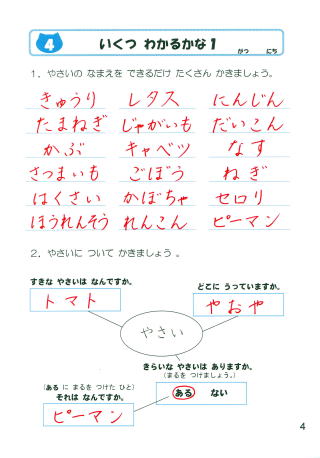 4 いくつ わかるかな 1 がつ にち
1. やさいの なまえを できるだけ たくさん かきましょう。
きゅうり レタス にんじん
たまねぎ じゃがいも だいこん
かぶ キャベツ なす
さつまいも ごぼう ねぎ
はくさい かぼちゃ セロリ
ほうれんそう れんこん ピーマン
2. やさいに ついて かきましょう 。
すきな やさいは なんですか。
トマト
どこに うっていますか。
やおや
やさい
きらいな やさいは ありますか。
(まるを つけましょう。)
ある ない
(ある に まるを つけた ひと)
それは なんですか。
ピーマン
4